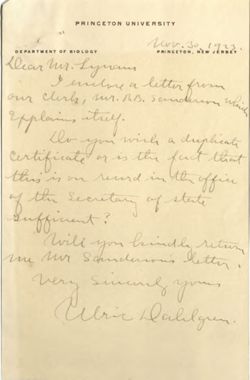 PRINCETON UNIVERSITY
DEPARTMENT OF BIOLOGY PRINCETON, NEW JERSEY
Nov. 30, 1933.
Dear Mr. Lyvans
I enclose a letter from
our clerk, Mr. B.B. Sanderson which
Explains itself.
Do you wish a duplicate
certificate or is the fact that
this is on record in the office
of the Secretary of state
sufficent?
Will you kindly return
me Mr Sandersons letter.
Very Sincerely yours
Ulric Dahlgren.